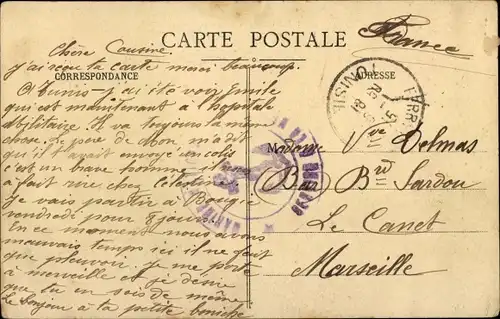 France
Chère Cousine
CARTE POSTALE
j'ai reçu ta carte merci beaucoup.
CORRESPONDANCE
ADRESSE
TUNISIE
A Tunis j'ai été voir Emile
qui est maintenant à l'hopitale
Militaire. Il va toujours la même
chose. le père de mon m'a dit
qu'il t'avait envoyé un colis
c'est un brave homme il nous
a fait rire chez Celestine
Je vais partir à Bougie
vendredi pour 8 jours.
En ce moment nous avons
mauvais temps ici il ne fait
que pleuvoir. je me porte
à merveille et je désire
que tu en sois de même
Le bonjour à ta petite boniche
Madame Vve Delmas
Bar Brd Sardou
Le Canet
Marseille